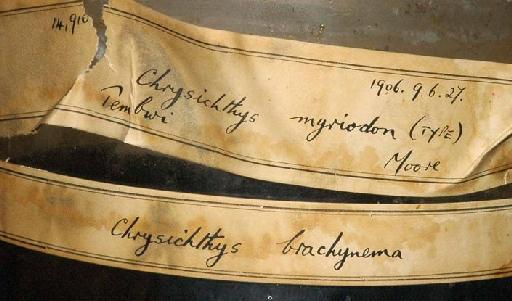 14,910
1906. 9. 6. 27.
Chrysichthys myriodon (TYPE)
Tembwi
Moore
Chrysichthys brachynema